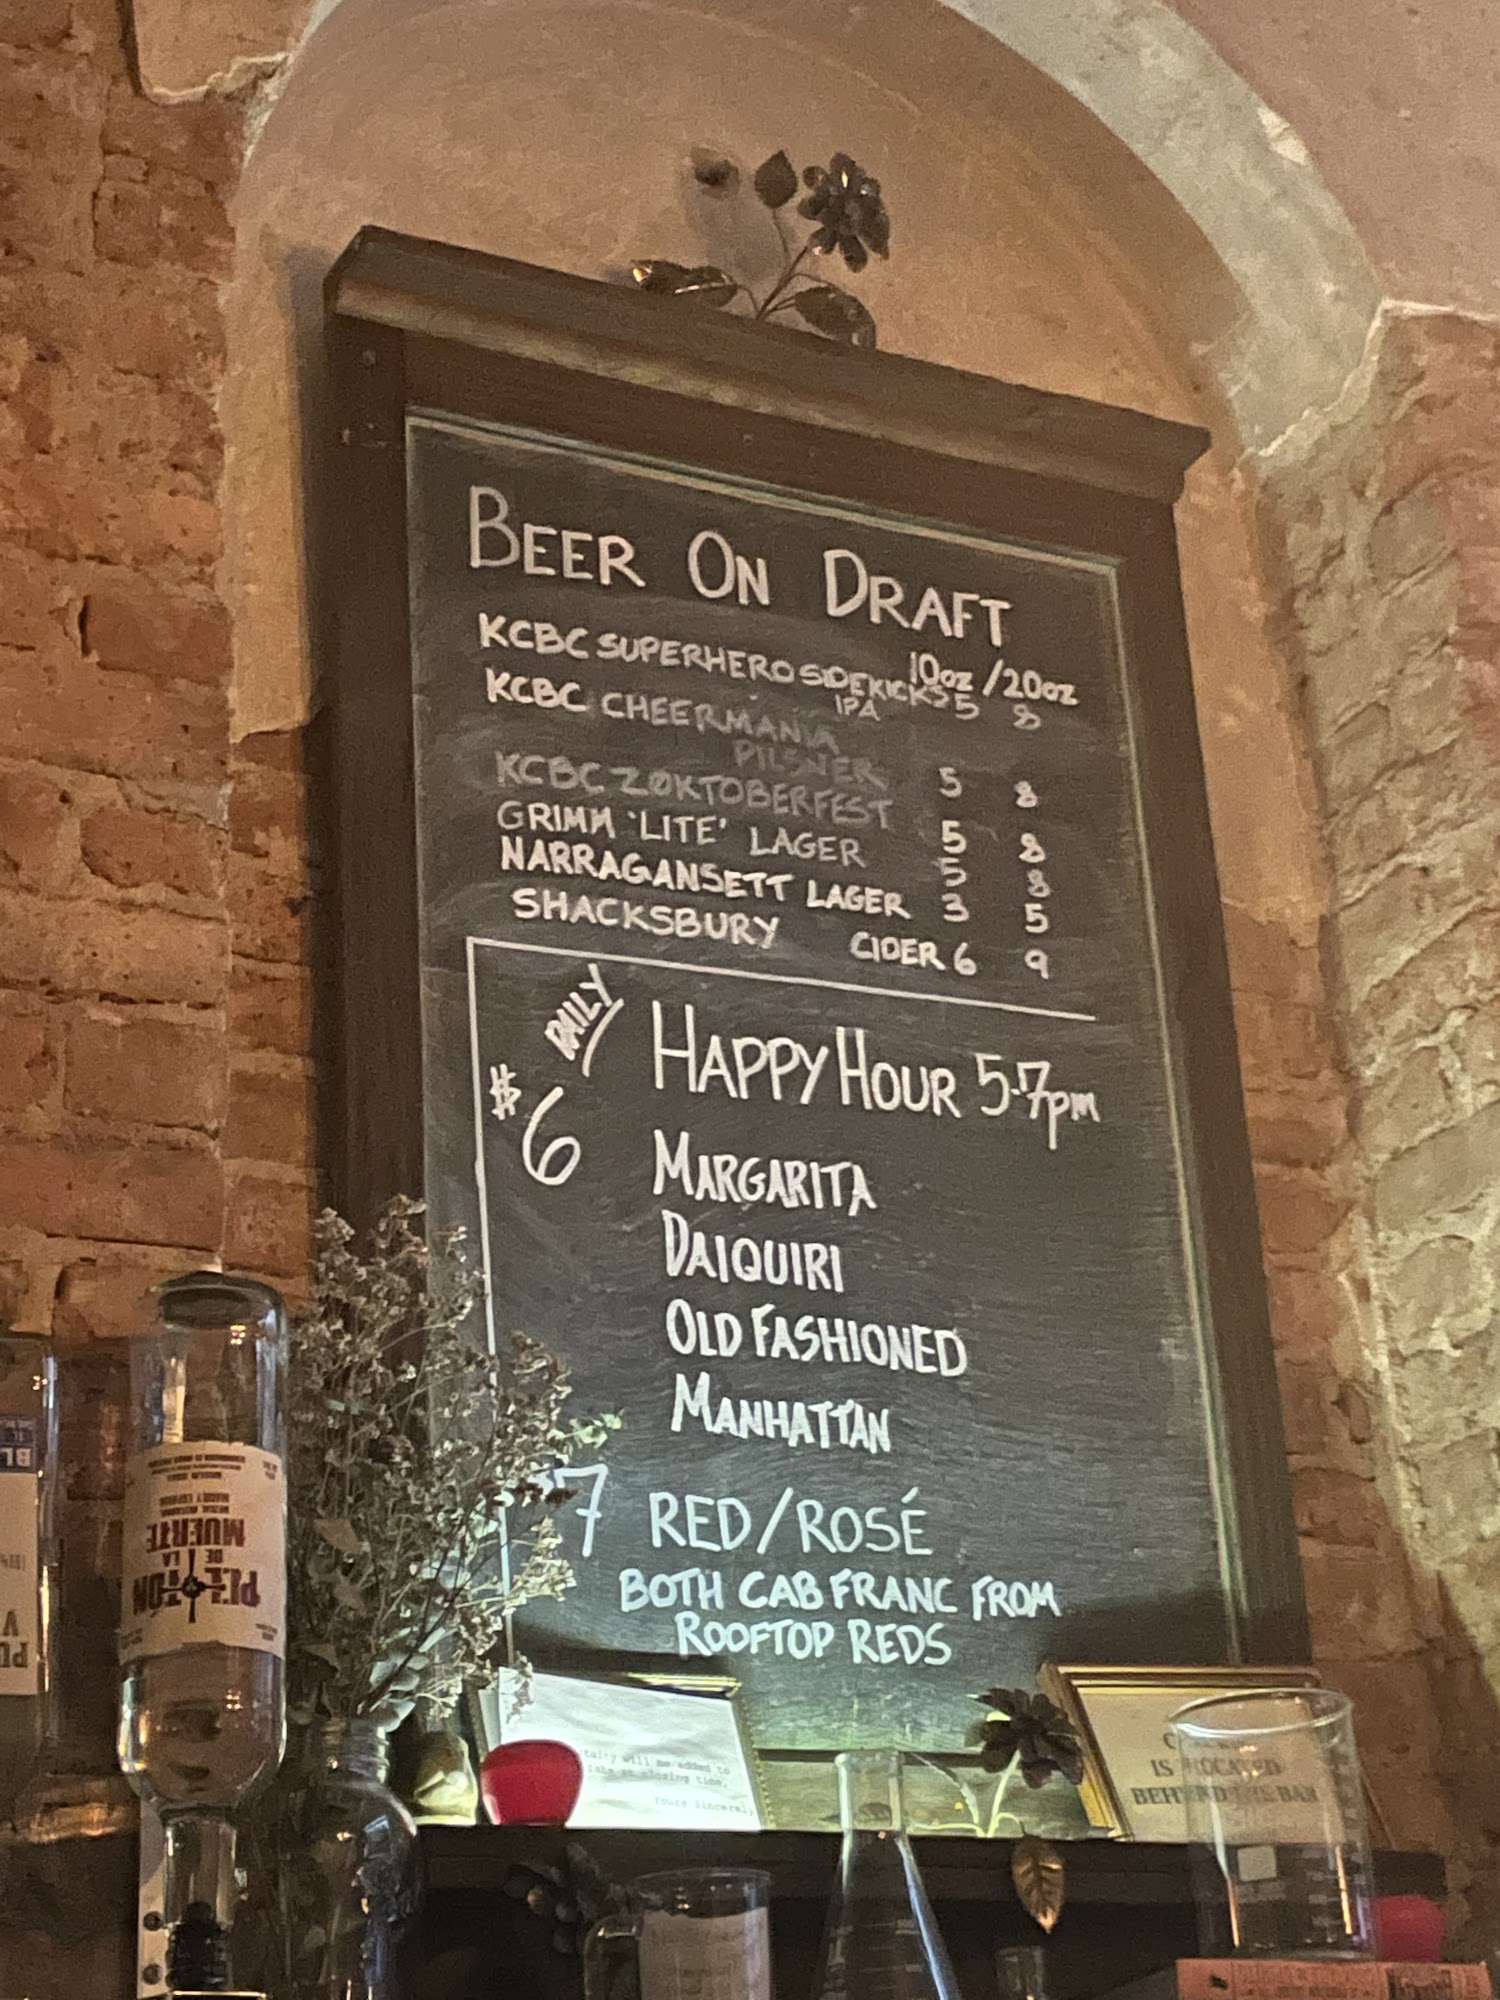 BEER ON DRAFT
10oz/20oz
KCBC SUPERHERO SIDEKICKS 5 8
IPA
KCBC CHEERMANIA
PILSNER 5 8
KCBC ZØKTOBERFEST 5 8
GRIMM 'LITE' LAGER 5 8
NARRAGANSETT LAGER 3 5
SHACKSBURY CIDER 6 9
DAILY
HAPPY HOUR 5-7pm
$6
MARGARITA
DAIQUIRI
OLD FASHIONED
MANHATTAN
7 RED/ROSÉ
BOTH CAB FRANC FROM
ROOFTOP REDS
PELOTON
DE
LA
MUERTE
will be added to
tabs at closing time,
IS LOCATED
BEHIND THE BAR